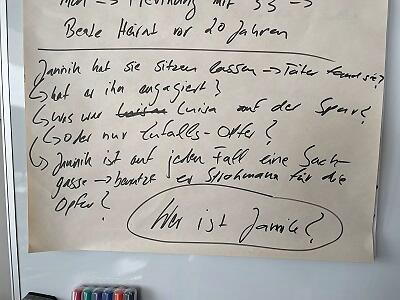 mit 33 →
Beate Heirat vor 20 Jahren
Jannik hat sie sitzen lassen → Täter
↳ hat er ihn engagiert?
↳ was war Luisa Luisa auf der Spur?
↳ oder nur Zufalls-Opfer?
↳ Jannik ist auf jeden Fall eine Sack-
gasse → benutzt er Strohmann für die
Opfer?
Wer ist Jannik?